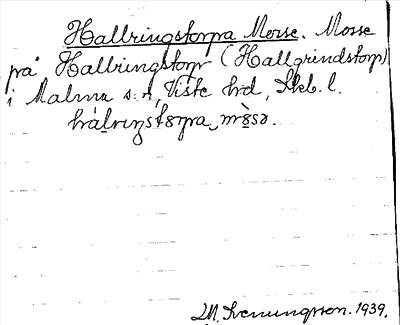 Hallringstorpa Mosse. Mosse
på Hallringstorp (Hallgrindstorp)
i Malma sn, Viste hd, Skb. l.
hàl̥riŋstɔrpa mɔ̀sə.
M. Svenungsson. 1939.